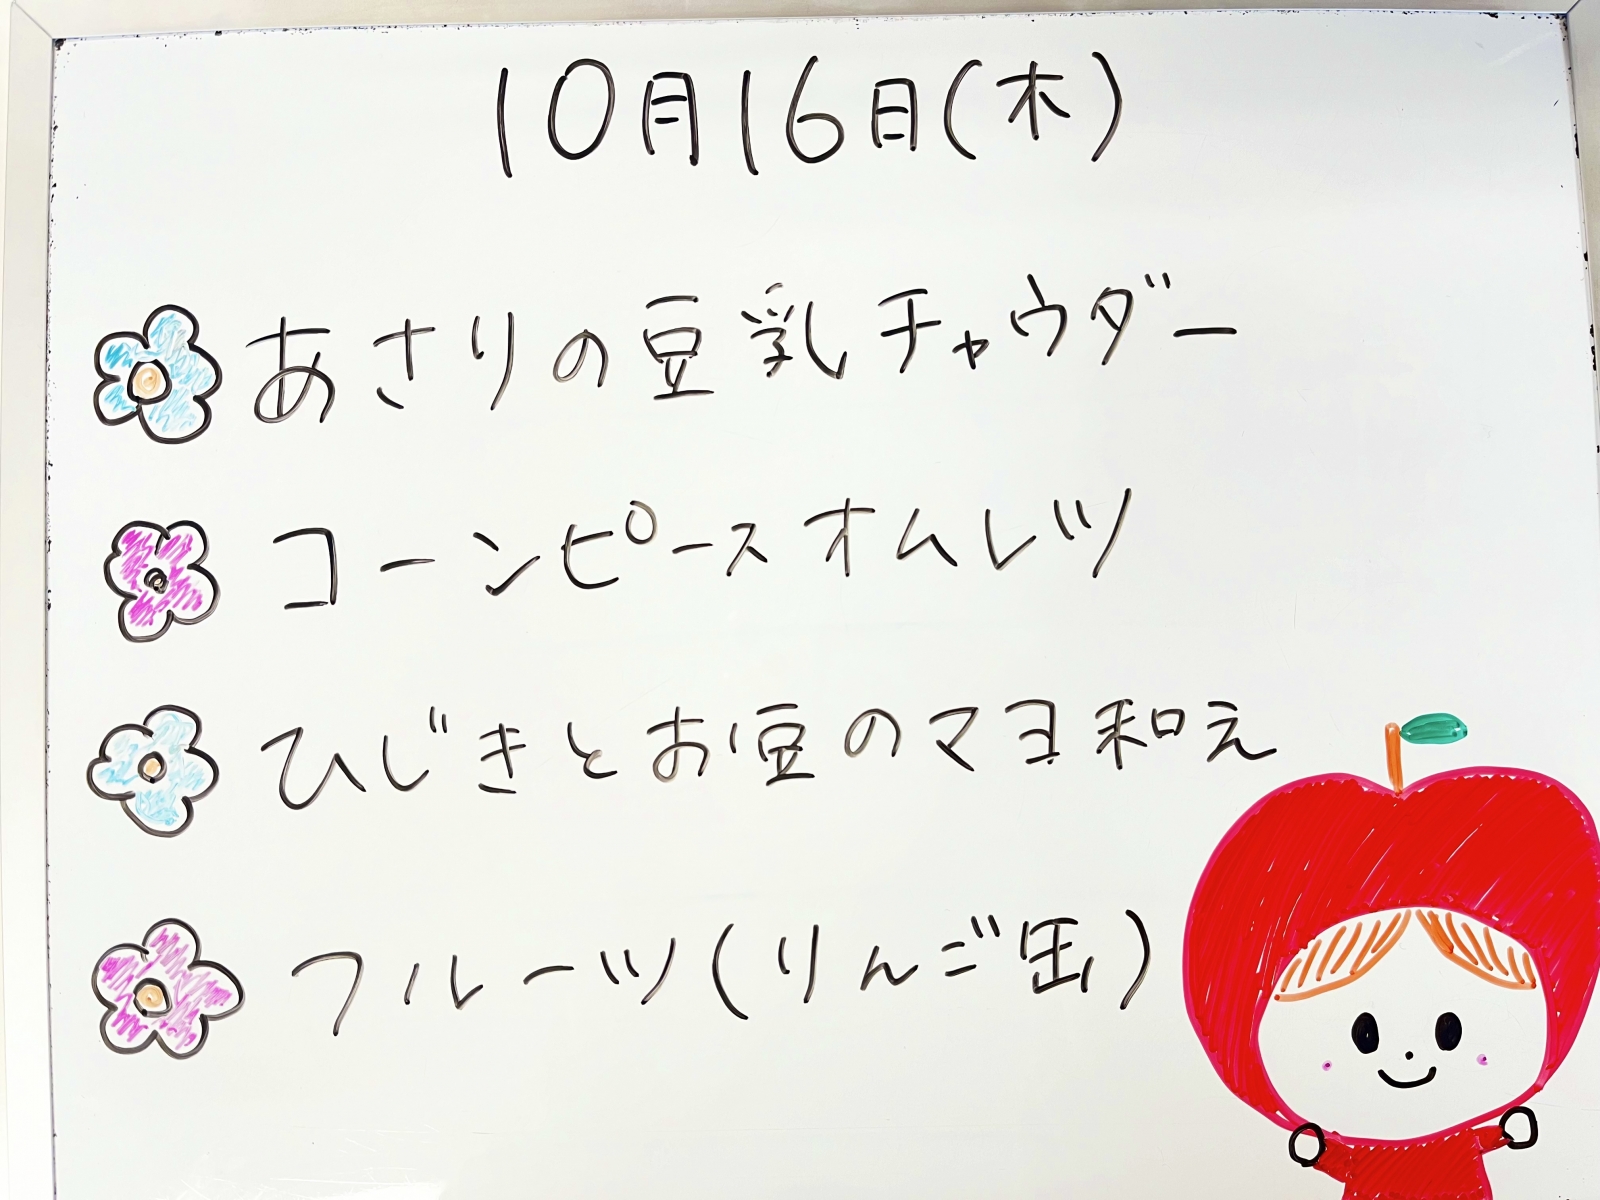 10月16日(木)
あさりの豆乳チャウダー
コーンピースオムレツ
ひじきとお豆のマヨ和え
フルーツ(りんご缶)